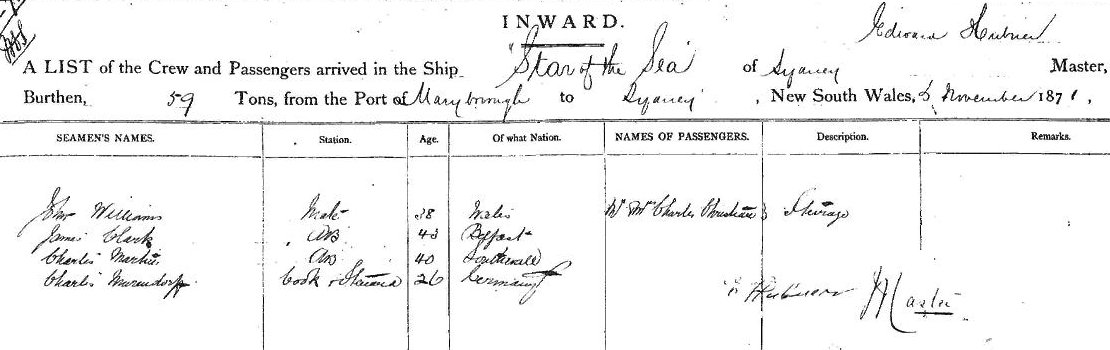 INWARD.
Edward Hubner
A LIST of the Crew and Passengers arrived in the Ship "Star of the Sea" of Sydney Master,
Burthen, 59 Tons, from the Port of Maryborough to Sydney, New South Wales, November 1871,
SEAMEN'S NAMES. Station. Age. Of what Nation. NAMES OF PASSENGERS. Description. Remarks.
John Williams Mate 38 Wales Charles Steerage
James Clark AB 43 Belfast
Charles AB 40
Charles Cook & Steward 26 Germany
E Hubner Master